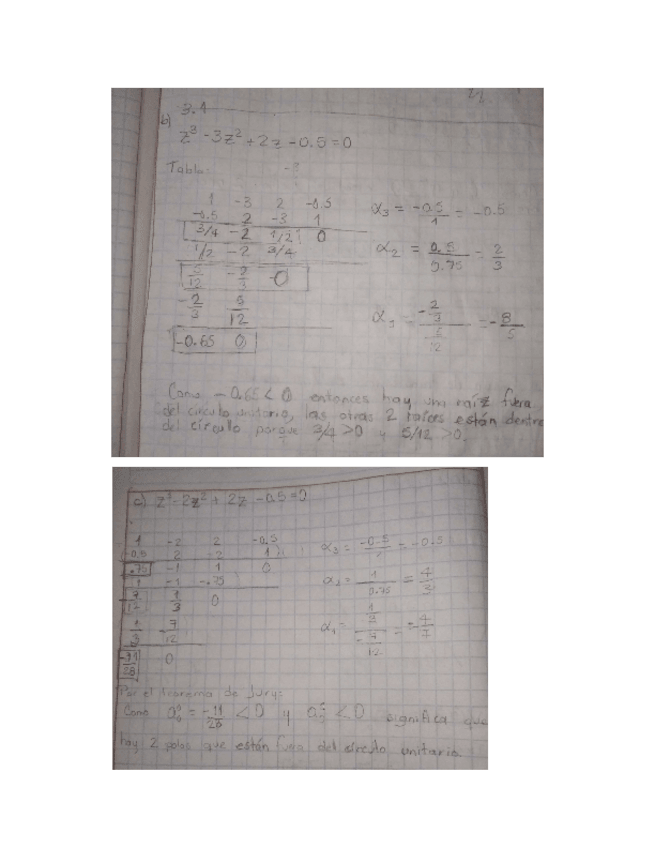 3.1
b)
z³ - 3z² + 2z - 0.5 = 0
Tabla:
1 -3 2 -0.5
-0.5 2 -3 1
3/4 -2 1/2 0
1/2 -2 3/4
5/12 -2/3 0
-2/3 5/12
-0.65 0
α₃ = -0.5/1 = -0.5
α₂ = 0.5/0.75 = 2/3
α₁ = (-2/3)/(5/12) = -8/5
Como -0.65 < 0 entonces hay una raíz fuera
del círculo unitario, las otras 2 raíces están dentro
del círculo porque 3/4 > 0 y 5/12 > 0.
c) z³ - 2z² + 2z - 0.5 = 0
1 -2 2 -0.5
-0.5 2 -2 1
.75 -1 1 0
1 -1 .75
1/3 0
1/3 -7/12
0
α₃ = -0.5/1 = -0.5
1/0.75 = 4/3
= -4/7
Por el teorema de Jury:
Como = -11/28 < 0 y < 0 significa que
hay 2 polos que están fuera del círculo unitario.